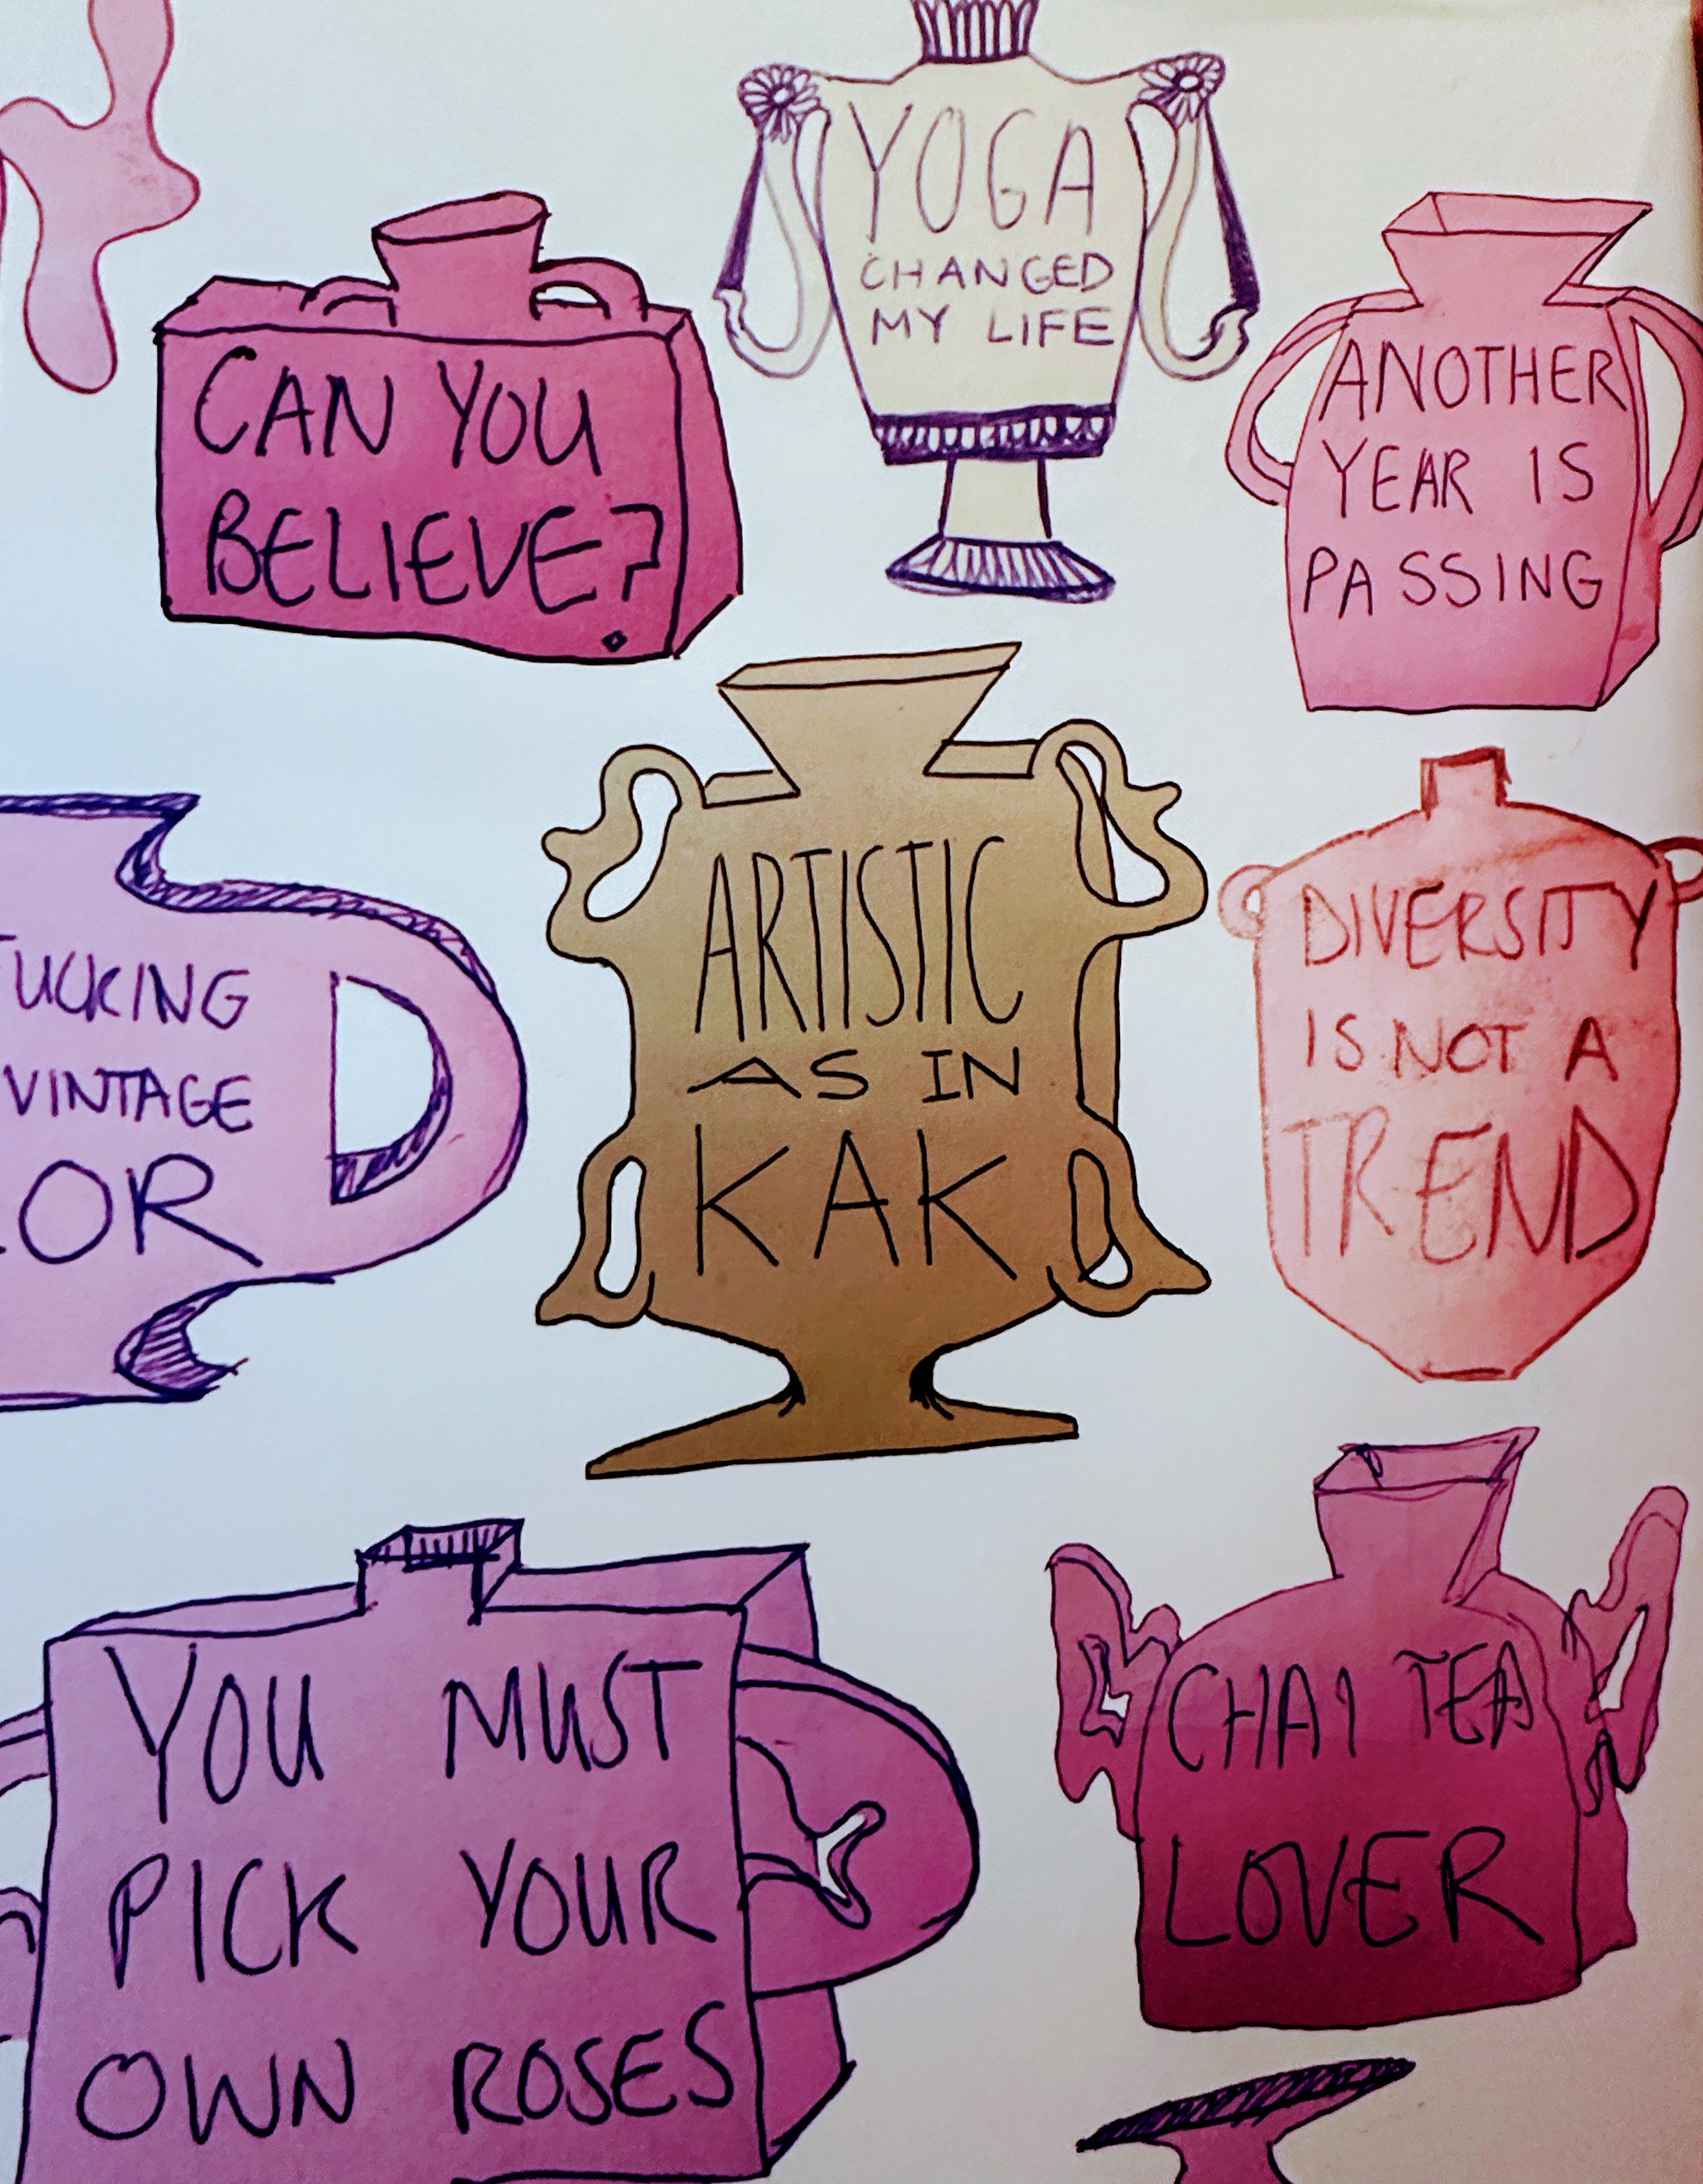 YOGA
CHANGED
MY LIFE
CAN YOU
BELIEVE?
ANOTHER
YEAR IS
PASSING
FUCKING
VINTAGE
OR
ARTISTIC
AS IN
KAK
DIVERSITY
IS NOT A
TREND
YOU MUST
PICK YOUR
OWN ROSES
CHAI TEA
LOVER